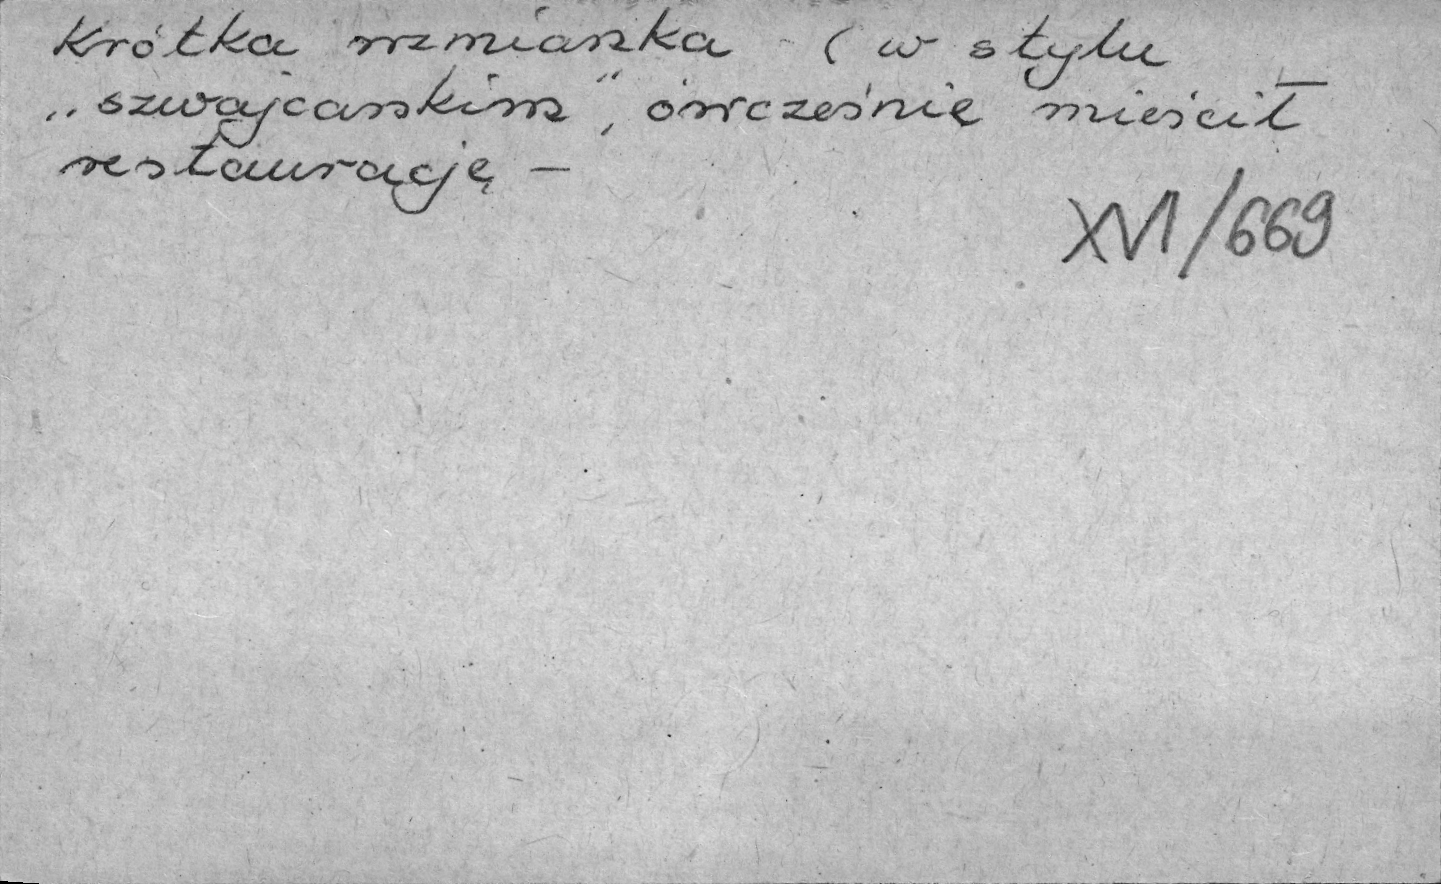 Krótka wzmianka - (w stylu
„szwajcarskim", ówcześnie mieścił
restaurację –
XVI/669